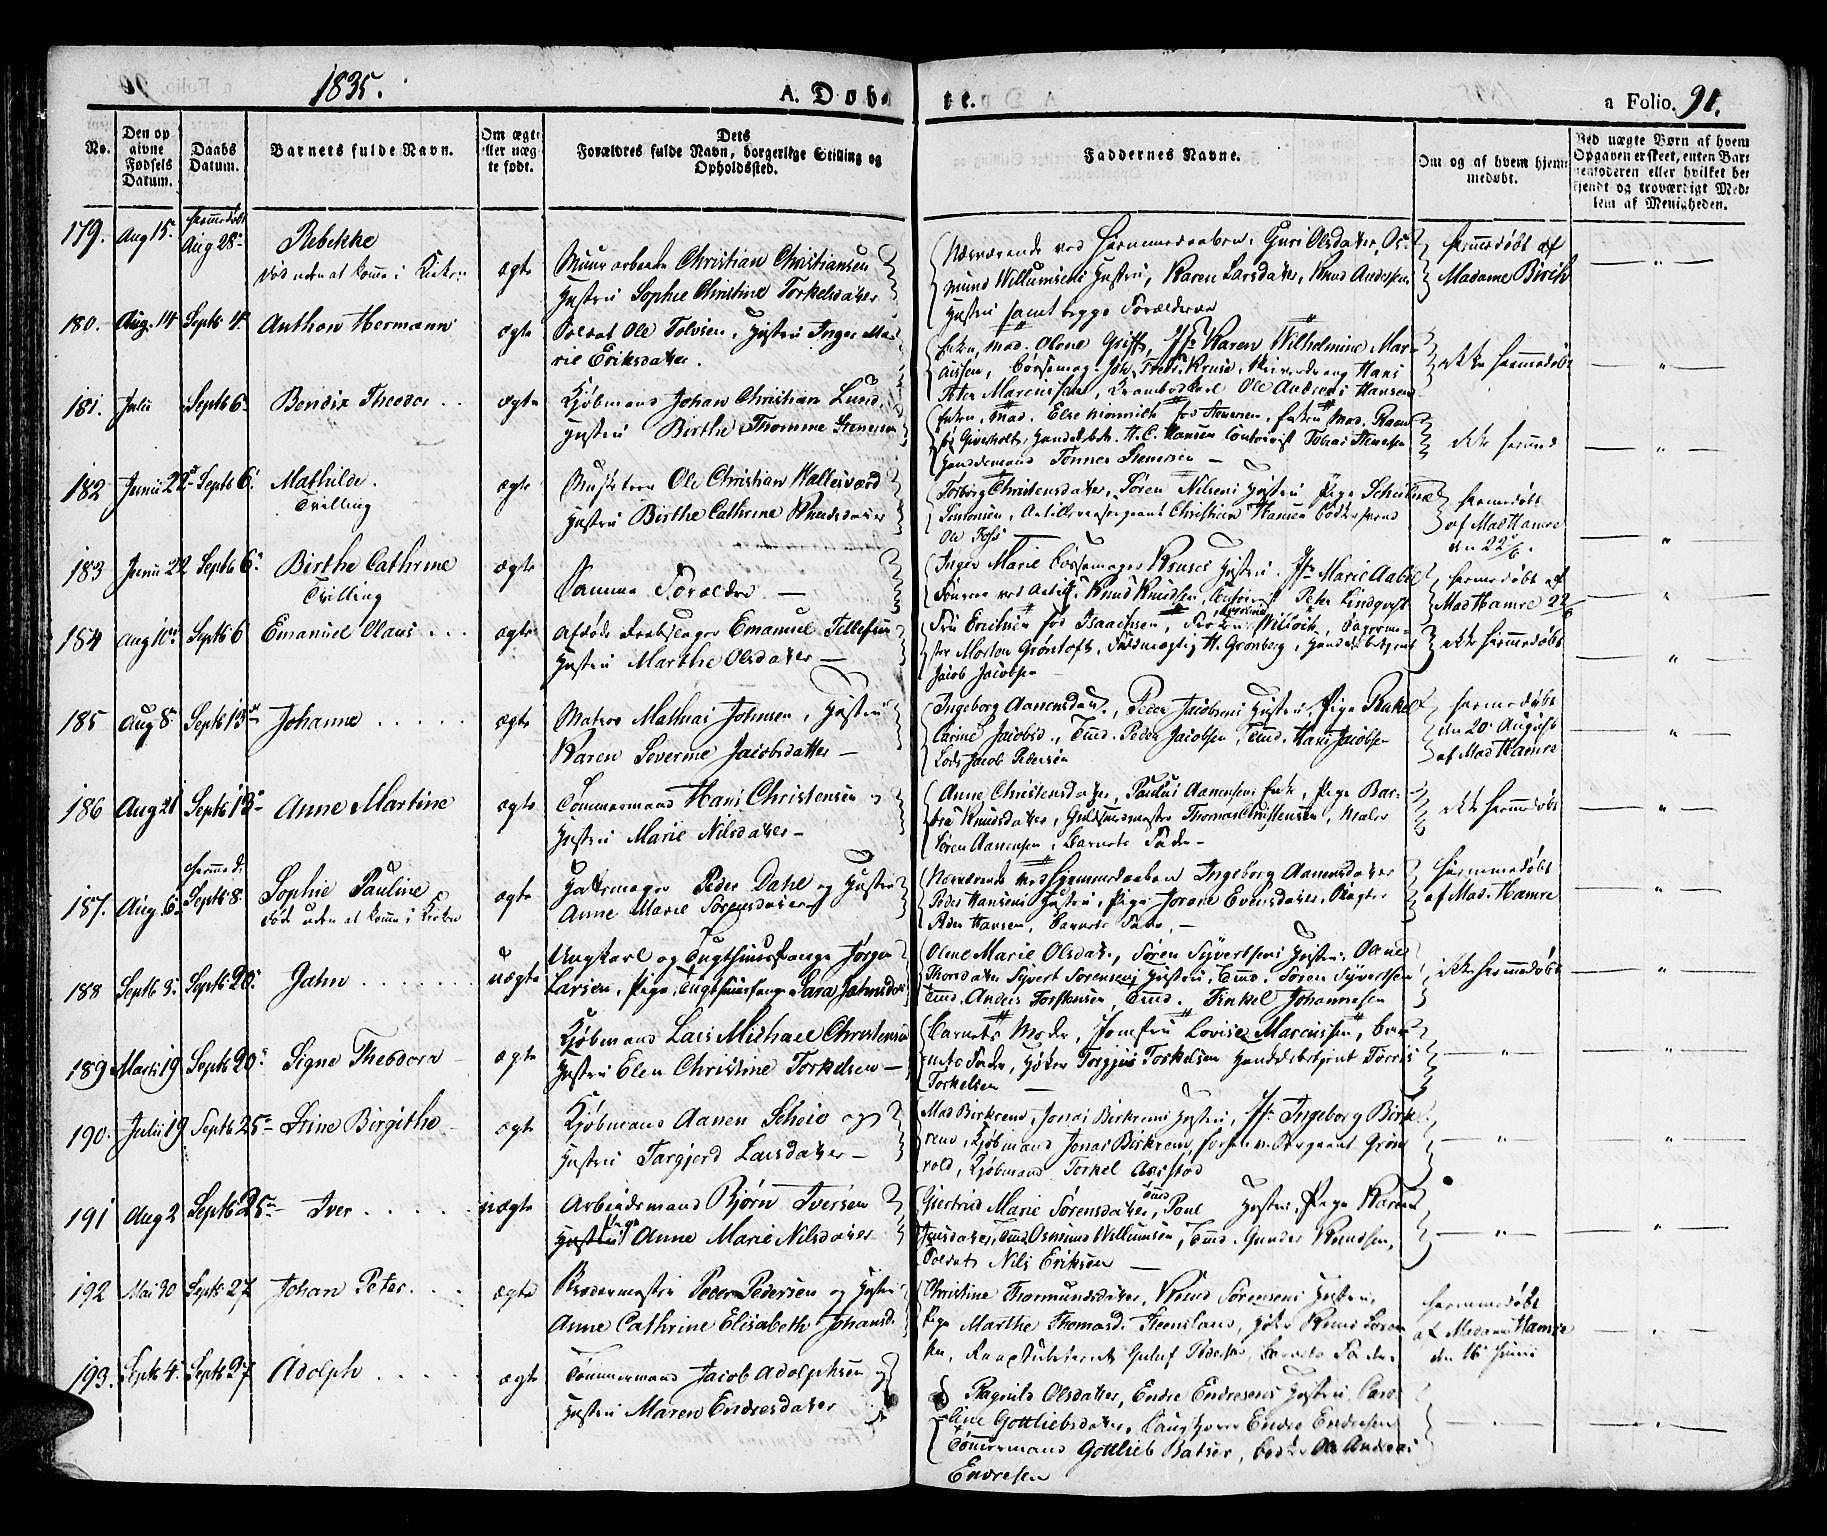 1835.
A. Døbte.
a Folio. 91.
No.
Den opgivne Fødsels Datum.
Daabs Datum.
Barnets fulde Navn.
Om ægte eller uægte født.
Dets Forældres fulde Navn, borgerlige Stilling og Opholdssted.
Faddernes Navne.
Om og af hvem hjemmedøbt.
Ved uægte Børn af hvem Opgaven er skeet, enten Barnefoderen eller hvilket bekjendt og troværdigt Medlem af Menigheden.
179. Aug 15. hiemmedøbt Aug 28 Rebekke
død uden at komme i Kirken
ægte
Murarbeider Christian Christiansen
Hustru Sophie Christine Torkelsdatter
Nærværende ved Hiemmedaaben, Guri Olsdatter, Os-
mund Willumsens Hustru, Karen Larsdatter, Knud Andersens
Hustru samt begge Forældrene
hiemmedøbt af
Madame Birch
180. Aug. 14 Septb 4. Anthon Hermann ægte
Soldat Ole Tolvsen, Hustru Inger Ma-
rie Eriksdatter.
Enken Mad. Olene Griff, Jfr Karen Wilhelmine Mar-
cussen, Børsemag. Joh. Fredr. Kruse, Skriverdreng Hans
Peter Marcussen, Krambodkarl Ole Andreas Hansen
ikke hiemmedøbt
181. Julii Septb 6 Bendix Theodor ægte
Kjøbmand Johan Christian Lund,
Hustru Birthe Thomme Stenersen
H. C. Hansen Controleur Tobias Stenersen
Tønnes Stenersen
ikke hiemmed
182 Junii 22 Septb 6 Mathilde.
Tvilling
ægte
Musketeer Ole Christian Hallesværd
Hustru Birthe Cathrine Knudsdatter
Torborg Christensdatter, Søren Nilsens Hustru, Pige
Simonsen, Artilleriesergeant Christian Hansen
Ole Foss
hiemmedøbt
af Mad Hamre
den 22/6.
183 Junii 22 Septb 6 Birthe Cathrine
Tvilling
ægte
Samme Forældre
Inger Marie Børsemager Kruses Hustru, Jfr Marie Aabel
Knud Knudsen, Peter Lindqvist
hiemmedøbt af
Mad Hamre 22/6
184 Aug 10 Septb 6 Emanuel Olaus ægte
Emanuel Tellefsen
Hustru Marthe Olsdatter
Fru Erichsen fød Isaachsen,
Morten Grøntoft, Fuldmægtig H. Grønberg,
Jacob Jacobsen
ikke hiemmedøbt
185 Aug 8 Septb 13 Johanne ægte
Matros Mathias Johnsen, Hustru
Karen Severine Jacobsdatter
Ingeborg Aanensdatter, Peder Jacobsens Hustru, Pige Rakel
Carine Jacobsd., Tmd. Peder Jacobsen, Tmd. Hans Jacobsen
Lods Jacob Pedersen
hiemmedøbt
den 20 August
af Mad Hamre
186 Aug 21 Septb 13 Anne Martine ægte
Tømmermand Hans Christensen og
Hustru Marie Nilsdatter
Anne Christensdatter, Paulus Aanensens Enke, Pige Bar-
bra Knudsdatter, Guldsmedmester Thomas Christensen, Maler
Søren Aanensen, Barnets Fader
ikke hiemmedøbt
187. Aug 6 hiemmed. Septb 8. Sophie Pauline
Død uden at komme i Kirken
ægte
Hattemager Peder Dahl og Hustru
Anne Marie Sørensdatter
Nærværende ved Hjemmedaaben Ingeborg Aanensdatter
Peder Hansens Hustru, Pige Jorane Evensdatter, Røgter
Peder Hansen, Barnets Fader.
hiemmedøbt
af Mad. Hamre
188 Septb 3. Septb 20. Jahn uægte
Ungkarl og Tugthusfange Jørgen
Larsen, Pige, Tugthusfange Sara Jahnsdatter
Olene Marie Olsdatter, Søren Syvertsens Hustru,
Thorsdatter Syvert Sørensens Hustru, Tmd. Søren Syvertsen
Tmd. Anders Torstensen, Tmd. Tinkel Johannesen
ikke hiemmedøbt
189 Marts 19 Septb 20 Signe Theodora ægte
Kjøbmand Lars Michael Christensen
Hustru Elen Christine Torkelsen
Barnets Moder, Jomfru Lovise Marcussen, Bar-
nets Fader, Høker Torgjus Torkelsen Handelsbetjent Torris
Torkelsen
190. Julii 19 Septb 25 Stine Birgithe ægte
Kjøbmand Aanen Scheie og
Hustru Targjerd Larsdatter
Mad Birkrem, Jonas Birkrems Hustru, Jfr Ingeborg Birk-
rem, Kjøbmand Jonas Birkrem,
Kjøbmand Torkel
191 Aug 2 Septb 25 Iver uægte
Arbeidsmand Bjørn Iversen
Hustru Pige Anne Marie Nilsdatter
Giertrud Marie Sørensdatter, Tmd Povl Hustru, Pige Karen
Jensdatter, Tmd Osmund Willumsen, Tmd. Gunder Knudsen,
Soldat Nils Eriksen
192 Mai 30 Septb 27 Johan Peter ægte
Peder Pedersen og Hustru
Anne Cathrine Elisabeth Johansd.
Christine Thormundsdatter, Knud Sørensens Hustru,
Pige Marthe Thomasd. Steensland, Høker Knud Søren-
sen, Guluf Pedersen, Barnets Fader
hiemmedøbt
af Madam Hamre
den 16 Junii
193. Septb 4. Septb 27 Adolph ægte
Tømmermand Jacob Adolphsen og
Hustru Maren Endresdatter
Ragnild Olsdatter, Endre Endresens Hustru, Caro-
line Gottliebsdatter, Endre Endresen
Tømmermand Gottlieb Batser, Ole Andreas
Endresen